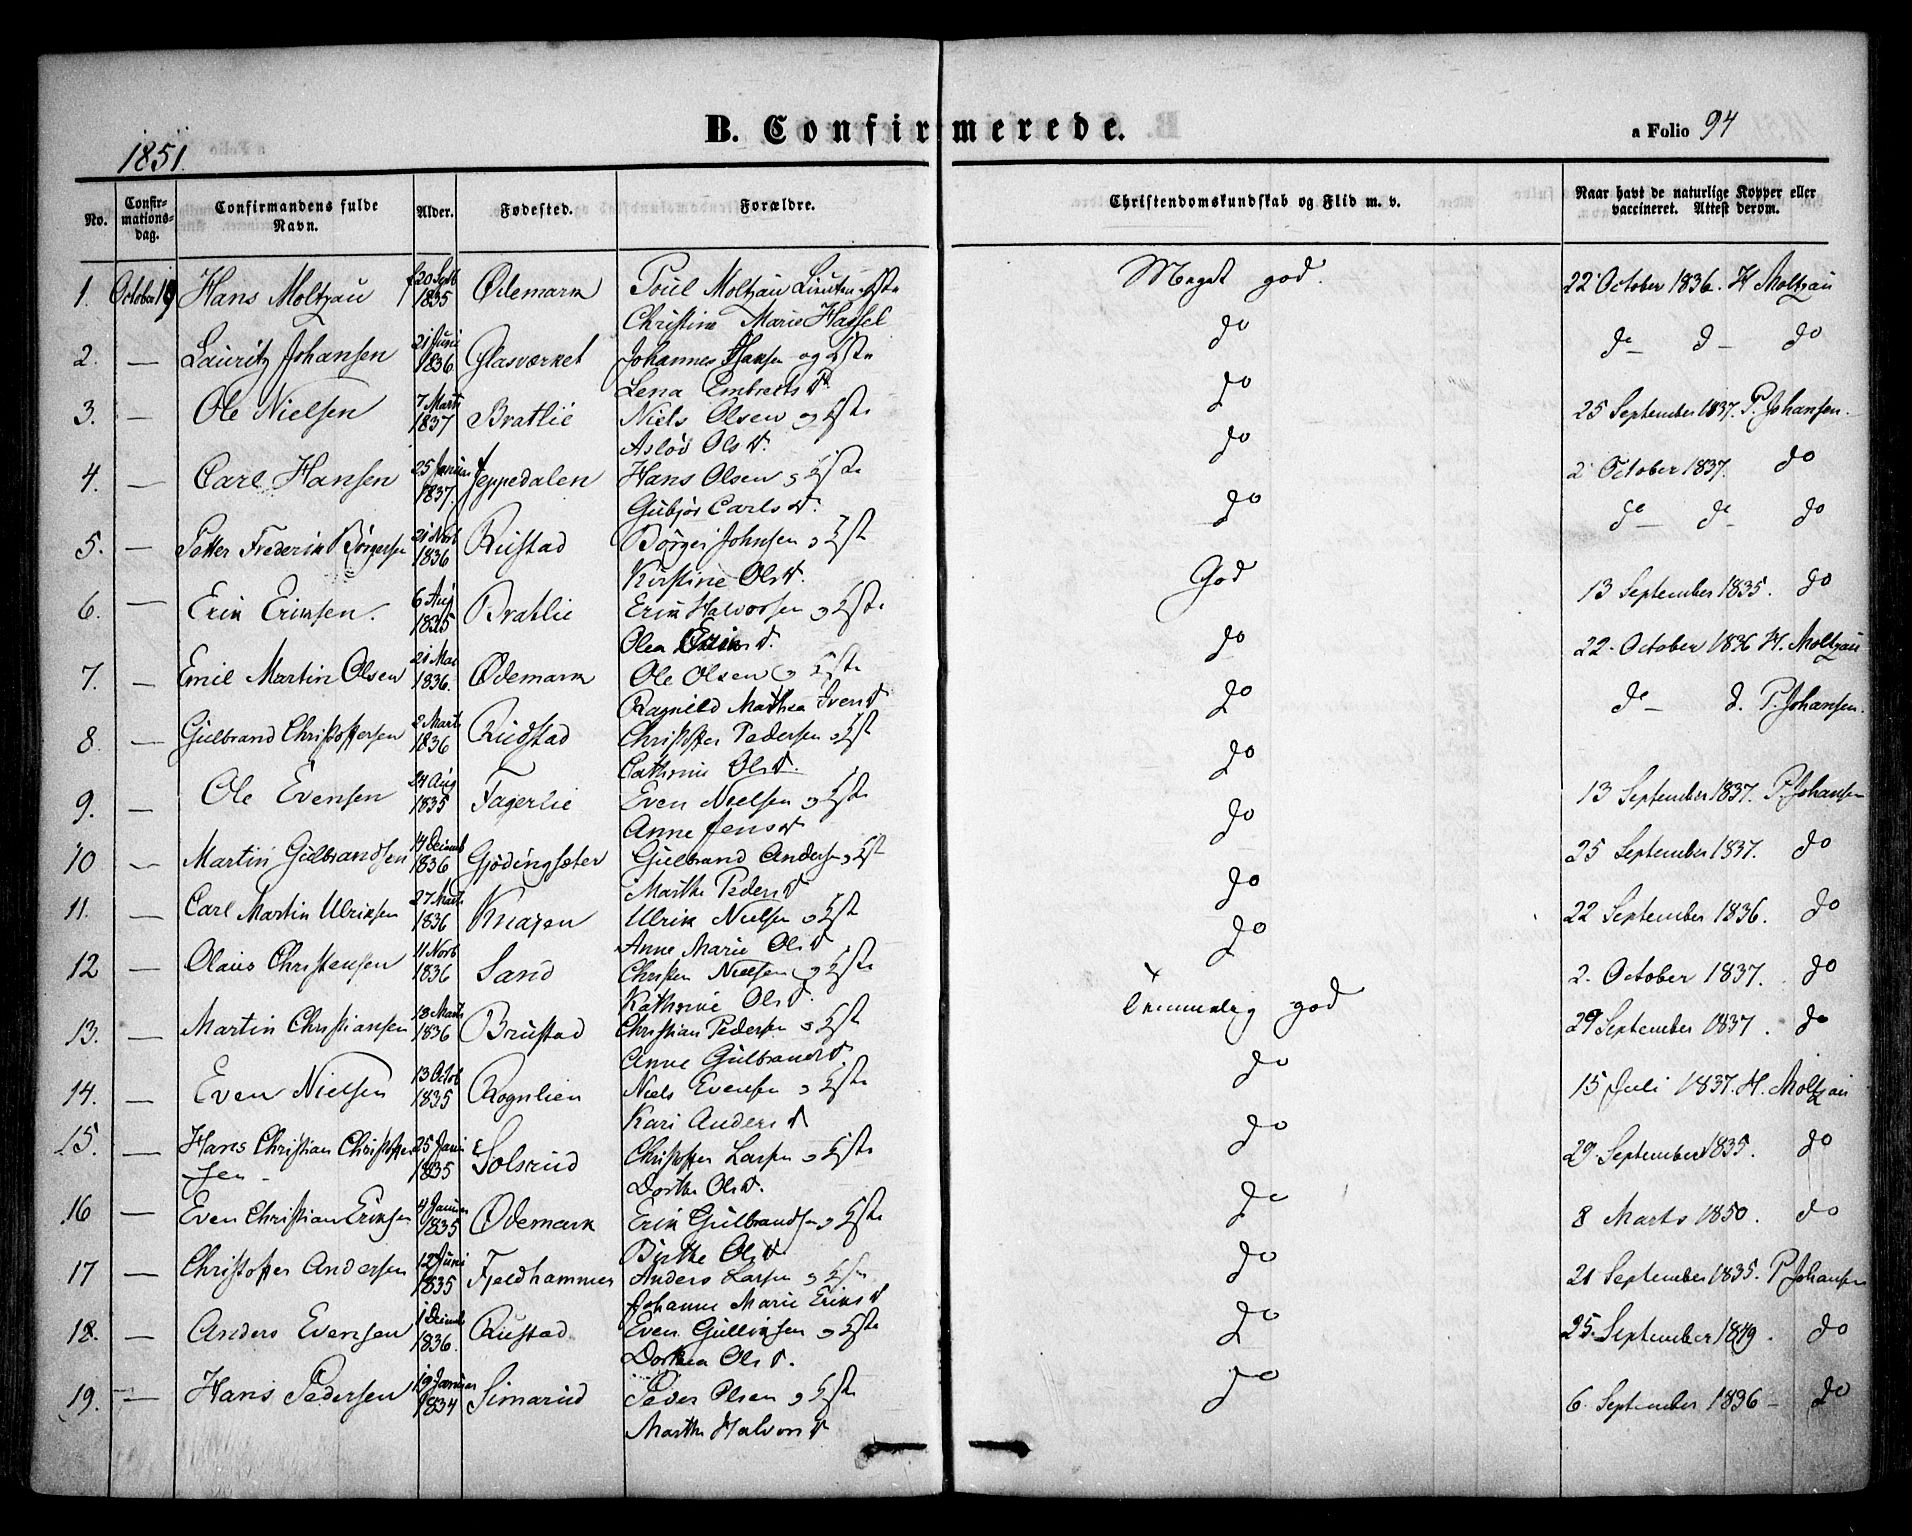 1851.
B. Confirmerede.
a Folio 94
No. Confirmationsdag. Confirmandens fulde Navn. Alder. Fødested. Forældre. Christendomskundskab og Flid m. v. Naar havt de naturlige Kopper eller vaccineret. Attest derom.
1. October 19 Hans Moltzau f 20 Septb 1835 Ødemark Poul Moltzau Meget god. 22 October 1836. H Moltzau
Christine Marie Hassel
2. — Lauritz Johansen 21 Juni 1836 Glasværket Johannes Hansen og Hste do do — d — do
Lena Embrets D.
3. — Ole Nielsen 7 Marts 1837 Bratlie Niels Olsen og Hste do 25 September 1837. P. Johansen.
Asløv Ols D.
4. — Carl Hansen 25 Januar 1837. Jeppedalen Hans Olsen og Hste do 2 October 1837. do
Gubjør Carls D.
5. — Petter Frederik Børgersen 21 Novb 1836 Rustad Børger Johnsen og Hste do de — de — do
Kirstine Ols D.
6. — Erik Eriksen. 6 Aug 1835 Bratlie Erik Halvorsen og Hste God 13 September 1835. do
Olea D.
7. — Emil Martin Olsen 21 Mai 1836. Ødemark Ole Olsen og Hste do 22 October 1836 H. Moltzau
Ragnild Mathea Ivers D
8. — Gulbrand Christoffersen 2 Marts 1836 Rudstad Christoffer Pedersen og Hst do de — d. P. Johansen.
Cathrine Ols D.
9. — Ole Evensen 24 Aug 1835 Fagerlie Even Nielsen og Hste do 13 September 1837. P. Johansen
Anne Jens D
10 — Martin Gulbrandsen 14 Decemb 1836 Gjødingsæter Gulbrand Andersen og Hst do 25 September 1837. do
Marthe Peders D
11. — Carl Martin Ulriksen 27 Marts 1836 Knapen Ulrik Nielsen og Hste do 22 September 1836. do
Anne Marie Ols D
12 — Olaus Christensen 11 Novb 1836 Sand Christen Nielsen og Hste do 2. October 1837. do
Kathrine Ols D.
13. — Martin Christiansen 18 Marts 1836 Brustad Christian Pedersen og Hste Temmelig god 29 September 1837. do
Anne Gulbrands D.
14. — Even Nielsen 13 Octob 1835 Rognlien Niels Evensen og Hste do 15 Juli 1837. H. Moltzau
Kari Anders D
15. — Hans Christian Christoffersen 25 Juni 1835 Solsrud Christoffer Larsen og Hste do 29 September 1835. do
Dorthe Ols D.
16 — Even Christian Eriksen 4 Januar 1835 Ødemark Erik Gulbrandsen og Hste do 8 Marts 1850. do
Birthe Ols D
17 — Christoffer Andersen 12 Juni 1835 Fjeldhammer Anders Larsen og Hste do 21 September 1835. P. Johansen
Johanne Marie Eriks D
18. — Anders Evensen 1 Decemb 1836. Rustad Even Gulliksen og Hste do 25. September 1849. do
Dorthea Ols D.
19. — Hans Pedersen 19 Januar 1834 Simarud Peder Olsen og Hste do 6. September 1836 — do
Marthe Halvors D